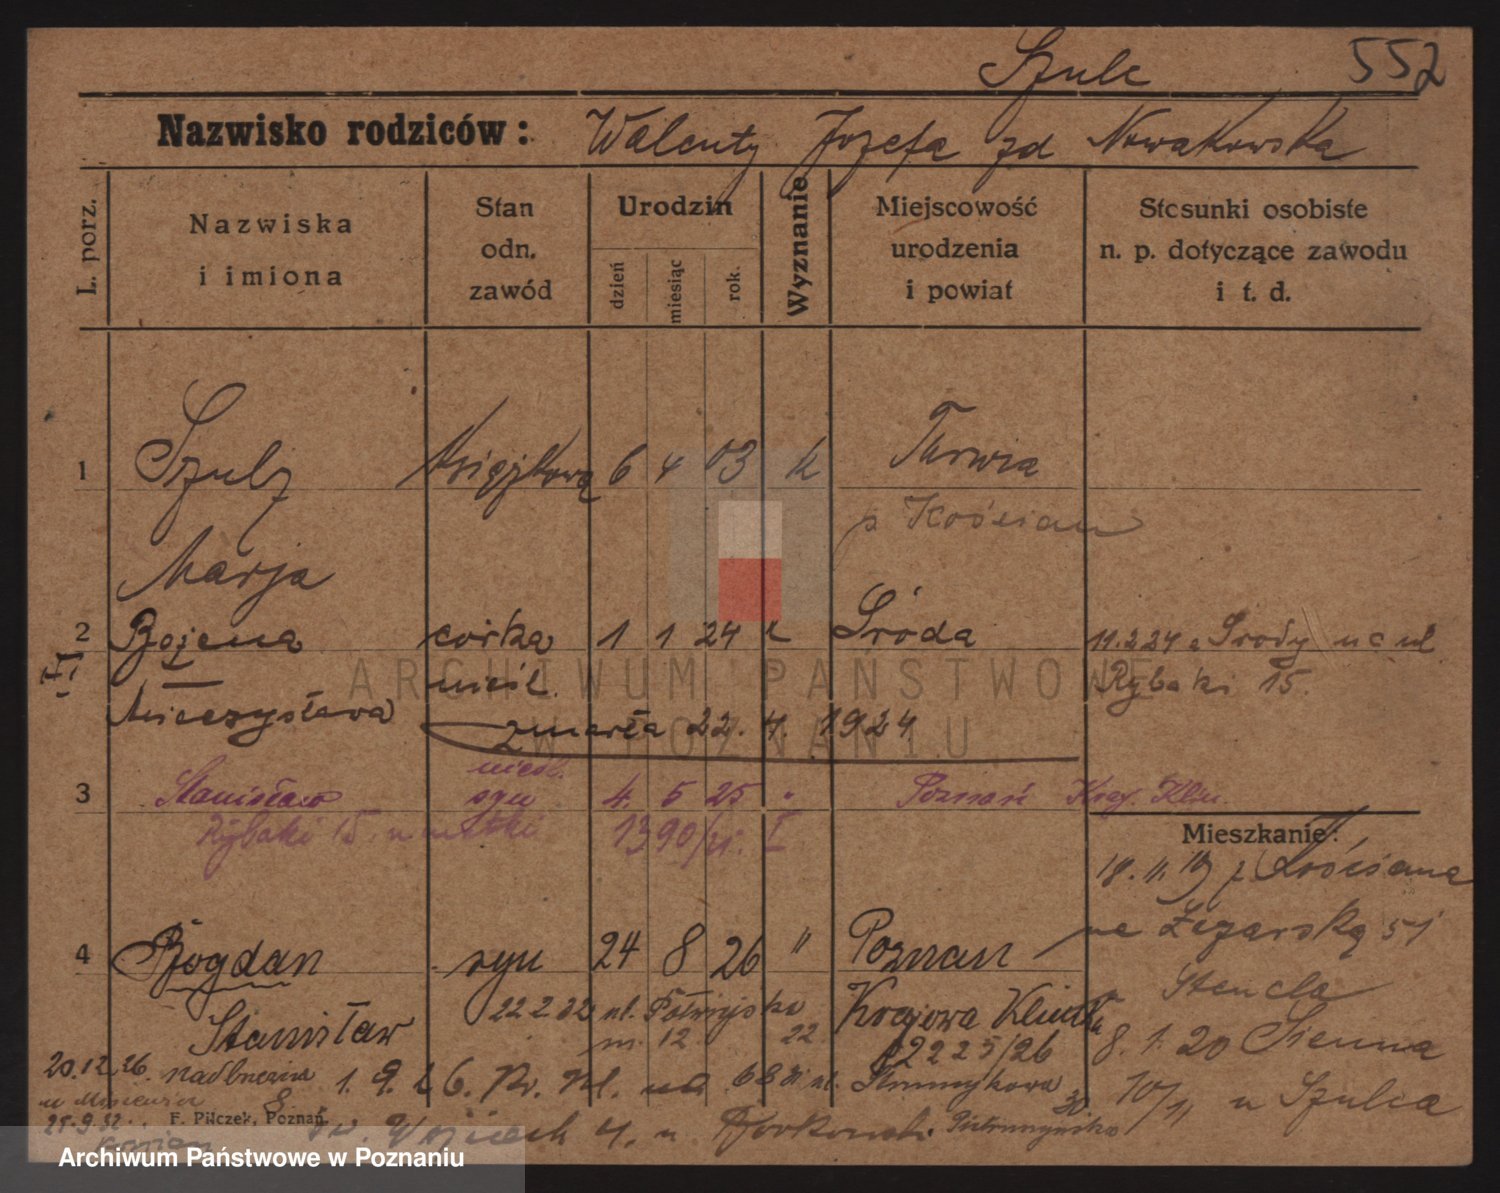 Szulc 552
Nazwisko rodziców: Walenty Józefa zd Nowakowska
L. porz.
Nazwiska
i imiona
Stan
odn.
zawód
Urodzin
dzień
miesiąc
rok.
Wyznanie
Miejscowość
urodzenia
i powiat
Stosunki osobiste
n. p. dotyczące zawodu
i t. d.
1 Szulz Księżkowa 6 4 03 k Turwia
p Kościan
Marja
2 Bożena córka 1 1 24 k Środa 11.2.24 z Środy na ul
Rybaki 15.
nieśl.
Mieczysława
zmarła 22. 4. 1924
nieśl.
3 Stanisław syn 4. 5 25 Poznań Kraj. Klin.
Rybaki 15. u matki 1390/ I
Mieszkanie:
18.11.19 z Kościana
na Żegarską 51
4 Bogdan syn 24 8 26 " Poznan
Stencla
Stanisław 22 2 32 ul. Półwiejska
m. 12 22
Krajowa Klinika
2225/26
8. 1. 20 Sienna
20.12.26. 1. 9. 26. Kr. Kl. 68 ul. Strumykowa
10/11 u Szulca
25.9.32 F. Pilczek, Poznań. św. Wojciech 4. u Borkowski
ARCHIWUM PAŃSTWOWE
W POZNANIU
Archiwum Państwowe w Poznaniu